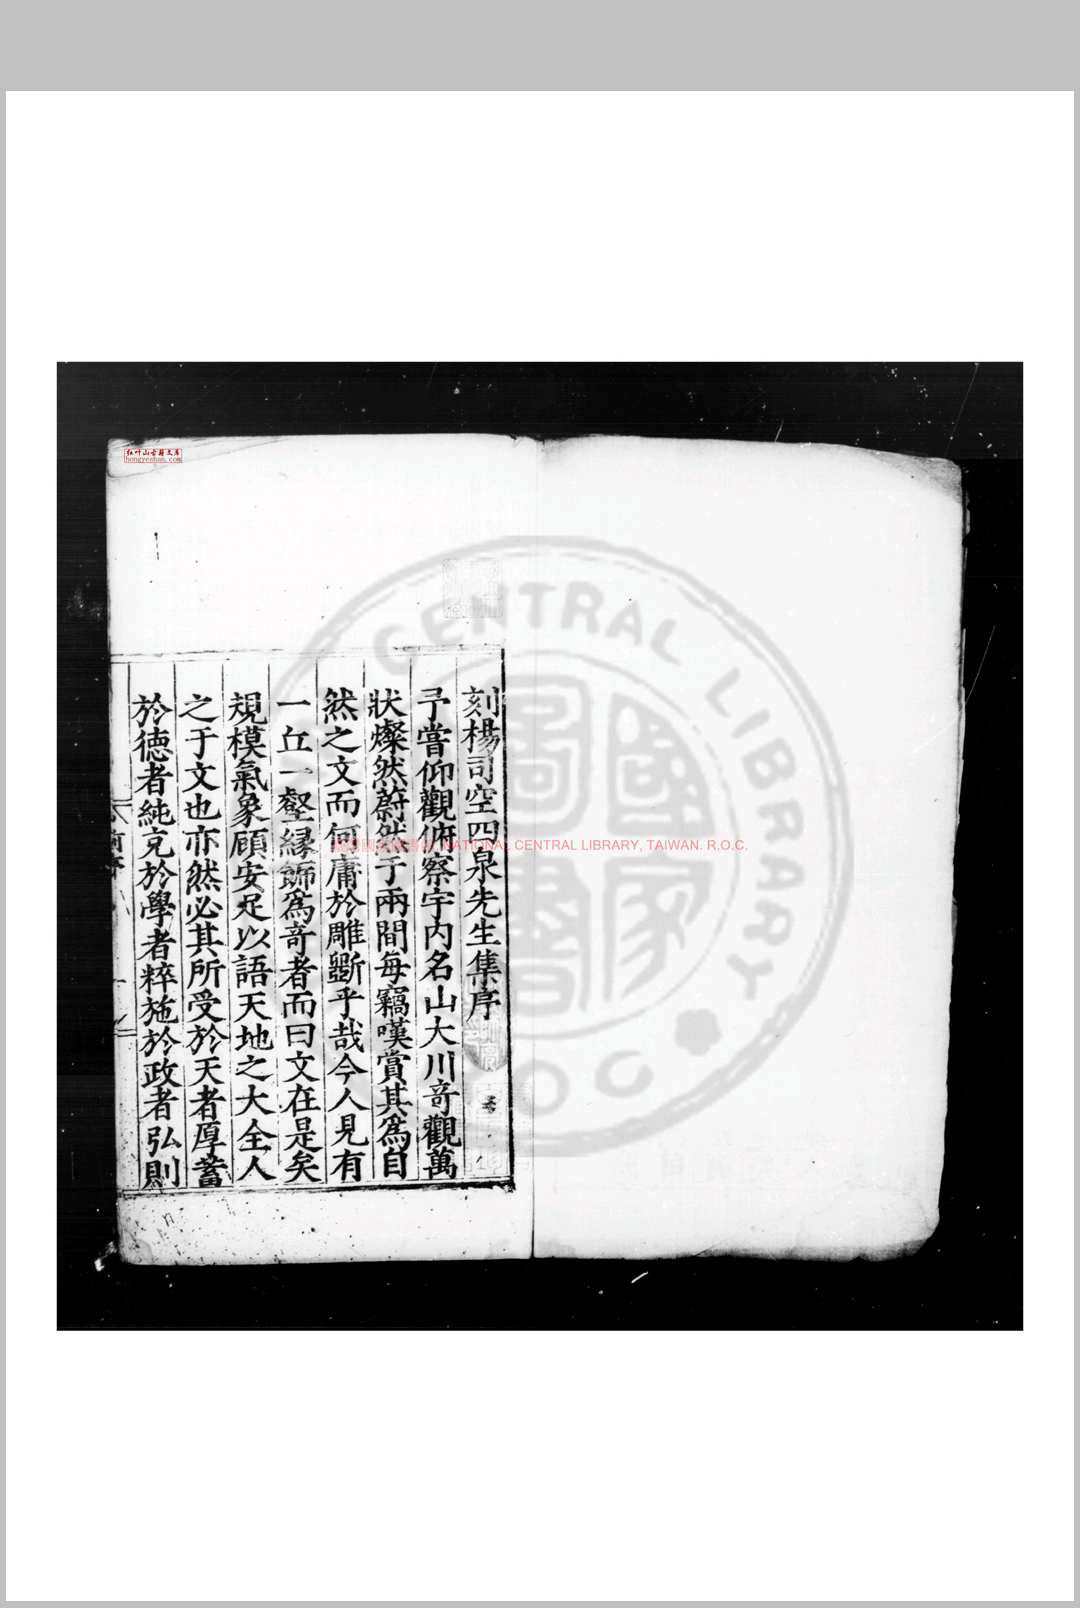 刻楊司空四泉先生集序
予嘗仰觀俯察宇內名山大川竒觀萬
狀燦然蔚然于兩間每竊嘆賞其為自
然之文而何庸於雕斲乎哉今人見有
一丘一壑縁飾爲竒者而曰文在是矣
規模氣象顧安足以語天地之大全人
之于文也亦然必其所受於天者厚蓄
於德者純充於學者粹施於政者弘則
紅叶山古籍文库
hongyeshan.com
NATIONAL CENTRAL LIBRARY, TAIWAN. R.O.C.
CENTRAL LIBRARY
ROC
國家圖書